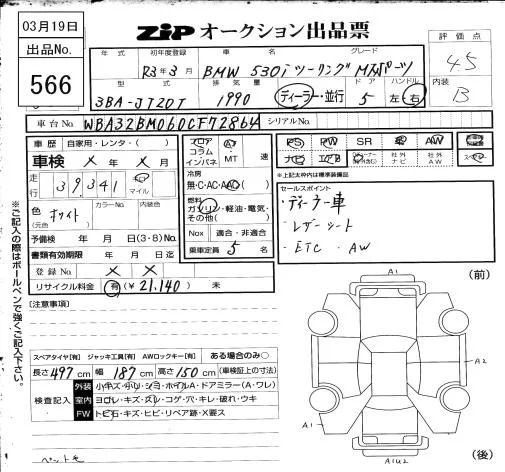 03月19日
ZIP オークション出品票
出品No.
566
評価点
4.5
内装
B
年式 初年度登録 車名 グレード
R3年3月 BMW 530iツーリング Mスポーツ
型式 排気量 ドア ハンドル
3BA-JT20T 1990 ディーラー・並行 5 左・右
車台No. WBA32BM060CF72864 シリアルNo.
車歴 自家用・レンタ・( )
車検 ×年 ×月
走行 39,341 キロ マイル
色 (元色) ホワイト カラーNo. 内装色
予備検 年 月 日(3・8)No.
書類有効期限 年 月 日迄
登録No. × ×
リサイクル料金 有(¥21.140) 未
フロア コラム インパネ AT MT 速
冷房
無・C・AC・AAC( )
燃料
ガソリン・軽油・電気・その他( )
Nox 適合・非適合
乗車定員 5 名
PS PW SR 革 AW
ナビ エアB 社外ナビ 社外AW
※上記太枠内は標準装備品
セールスポイント
・ディーラー車
・レザーシート
・ETC ・AW
※ご記入の際はボールペンで強くご記入下さい。
[注意事項]
スペアタイヤ[有] ジャッキ工具[有] AWロックキー[有] ある場合のみ○
長さ 497cm 幅 187cm 高さ 150cm (車検証上の寸法)
検査記入
外装 小キズ・小ヘコミ・ホイルA・ドアミラー(A・ワレ)
室内 ヨゴレ・キズ・スレ・コゲ・穴・キレ・破れ・ウキ
FW トビ石・キズ・ヒビ・リペア跡・X要ス
(前)
A1
A2
A1
A1U2
(後)